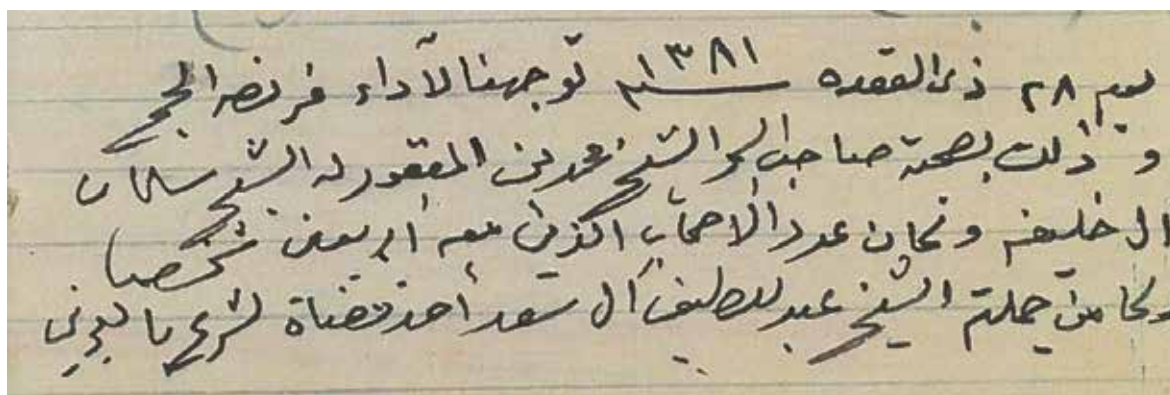 يوم ٢٨ ذى القعده سنة ١٣٨١ توجهنا لأداء فريضة الحج
و ذلك بصحبة صاحب السمو الشيخ محمد بن المغفور له الشيخ سلمان
ال خليفه وكان عدد الاصحاب الذين معه اربعين شخصا
وكان من جملتهم الشيخ عبد اللطيف آل سعد أحد قضاة الشرع بالبحرين